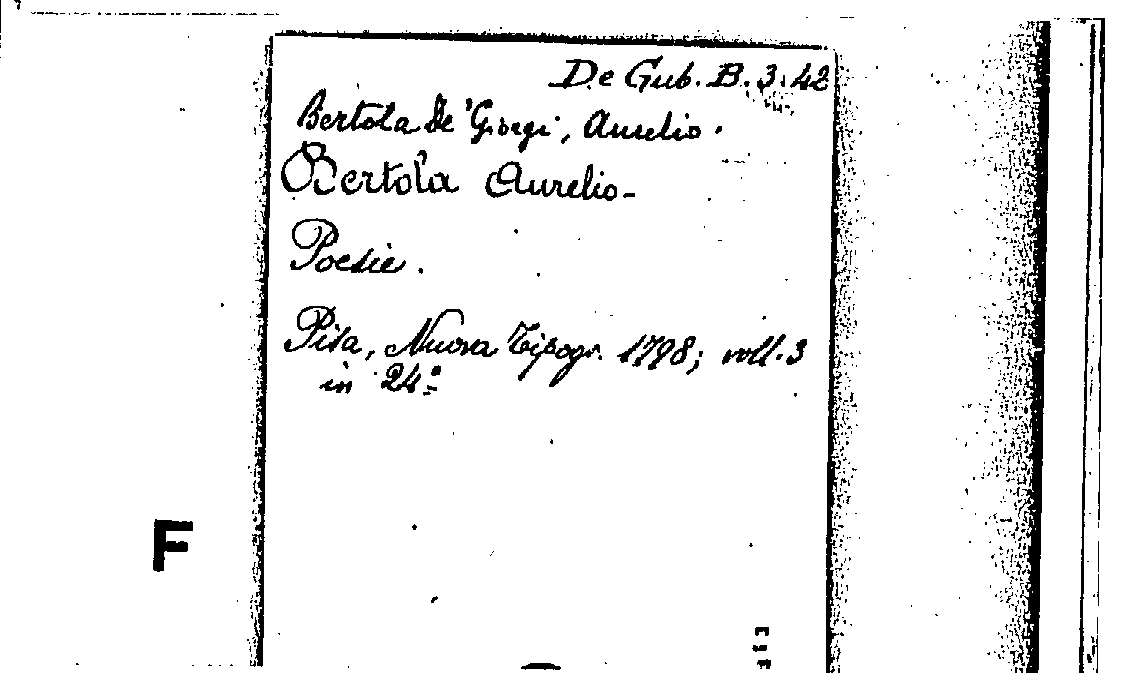 De Gub. B. 3. 42
Bertola de' Giorgi, Aurelio.
Bertola Aurelio-
Poesie.
Pisa, Nuova Tipogr. 1798; voll. 3
in 24º
F